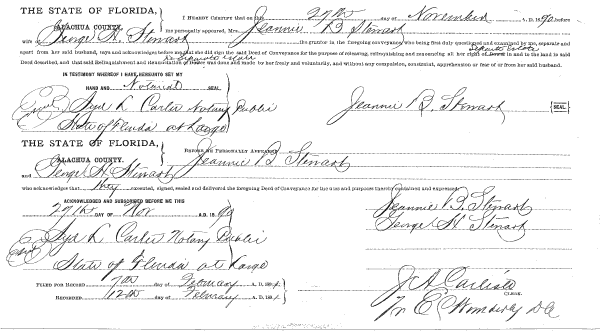 THE STATE OF FLORIDA,
ALACHUA COUNTY.
I HEREBY CERTIFY that on this 27th day of November A. D. 1890 before
me personally appeared, Mrs. Jeannie B Stewart
wife of George H. Stewart the grantor in the foregoing conveyance, who being first duly questioned and examined by me, separate and
Separate estate
apart from her said husband, says and acknowledges before me that she did sign the said Deed of Conveyance for the purpose of releasing, relinquishing and renouncing all her right of Dower in and to the land in said
Deed described, and that said Relinquishment and renunciation of Dower was done and made by her freely and voluntarily, and without any compulsion, constraint, apprehension or fear of or from her said husband.
IN TESTIMONY WHEREOF I HAVE HEREUNTO SET MY
HAND AND Notarial SEAL.
L. Carter Notary Public
State of Florida at Large
Jeannie B. Stewart SEAL.
THE STATE OF FLORIDA,
ALACHUA COUNTY.
BEFORE ME PERSONALLY APPEARED Jeannie B Stewart
and George H. Stewart
who acknowledges that they executed, signed, sealed and delivered the foregoing Deed of Conveyance for the uses and purposes therein contained and expressed.
ACKNOWLEDGED AND SUBSCRIBED BEFORE ME THIS
27th DAY OF Nov A. D. 1890
Jeannie B. Stewart
George H Stewart
L. Carter Notary Public
State of Florida at Large
FILED FOR RECORD 7th day of February A. D. 1891
RECORDED 12th day of February A. D. 1891
J. A. Carlisle
CLERK.
Per E Wimberly DC